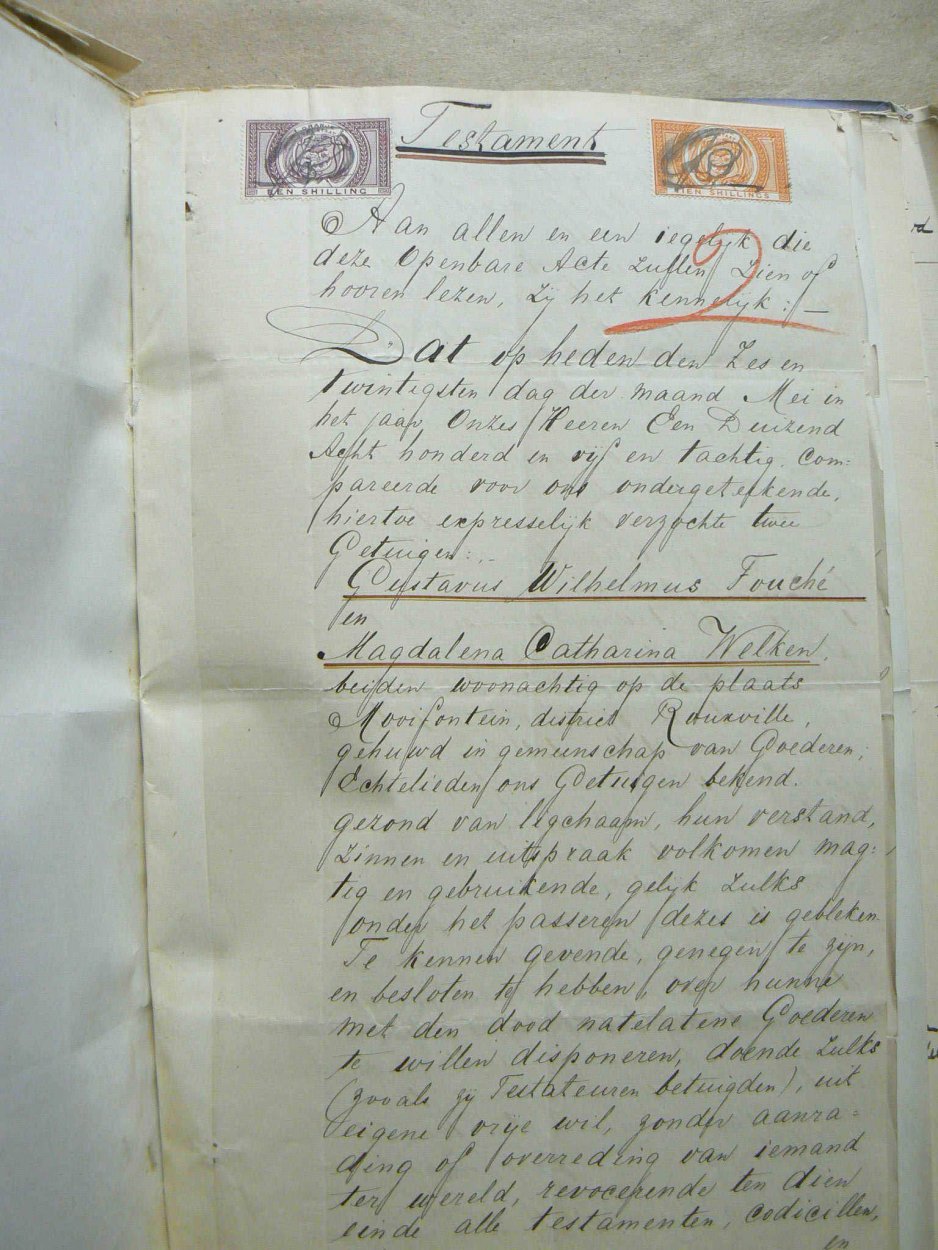 Testament
EEN SHILLING
TIEN SHILLINGS
2
Aan allen en een iegelijk die
deze Openbare Acte zullen zien of
hooren lezen, zij het kennelijk:—
Dat op heden den Zes en
twintigsten dag der maand Mei in
het jaar Onzes Heeren Een Duizend
Acht honderd en vijf en tachtig, com=
pareerde voor ons ondergetekende,
hiertoe expresselijk verzochte twee
Getuigen:—
Gustavus Wilhelmus Fouché
en
Magdalena Catharina Welken,
beijden woonachtig op de plaats
Mooifontein, district Rouxville,
gehuwd in gemeenschap van Goederen,
Echtelieden ons Getuigen bekend.
gezond van ligchaam, hun verstand,
zinnen en uitspraak volkomen mag=
tig en gebruikende, gelijk zulks
onder het passeren dezes is gebleken
Te kennen gevende, genegen te zijn,
en besloten te hebben, over hunne
met den dood natelatene Goederen
te willen disponeren, doende zulks
(zooals zij Testateuren betuigden), uit
eigene vrije wil, zonder aanra=
ding of overreding van iemand
ter wereld, revocerende ten dien
einde alle testamenten, codicillen,
en